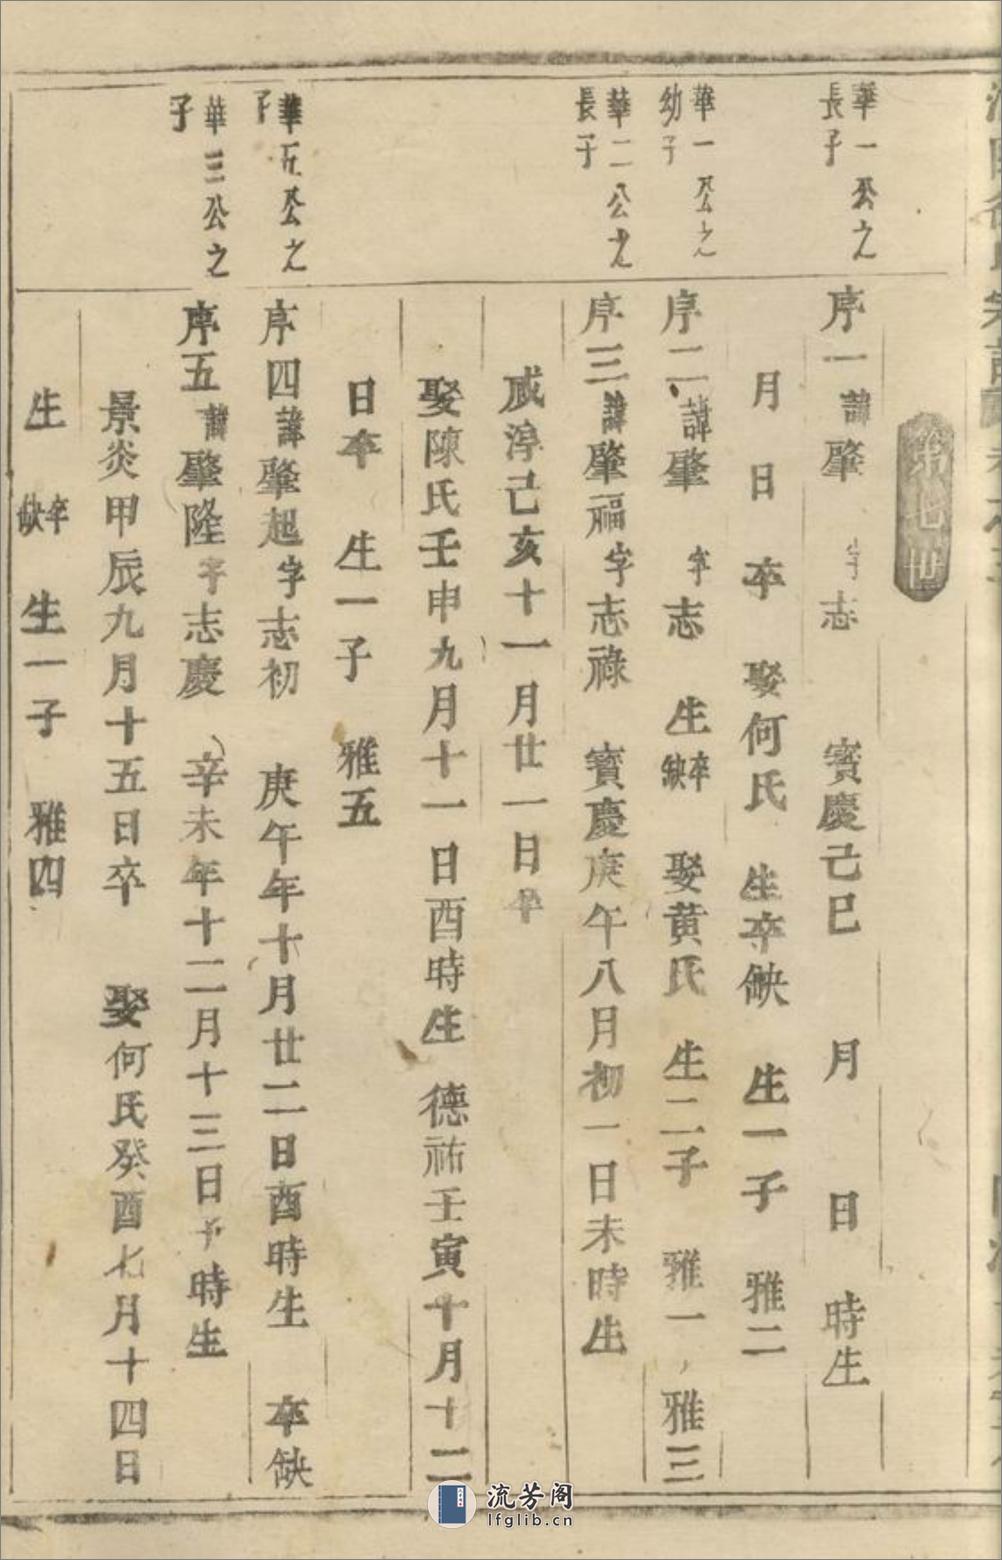 第七世
華一公之
長子
序一諱肇 字志 寳慶己巳 月 日 時生
月 日 卒 娶何氏 生卒缺 生一子 雅二
華一公之
幼子
序二諱肇 字志 生卒缺 娶黄氏 生二子 雅一 雅三
華二公之
長子
序三諱肇福字志祿 寳慶庚午八月初一日未時生
咸淳己亥十一月廿一日卒
娶陳氏壬申九月十一日酉時生 德祐壬寅十月十二
日卒 生一子 雅五
華五公之
子
序四諱肇起字志初 庚午年十月廿二日酉時生 卒缺
華三公之
子
序五諱肇隆字志慶 辛未年十二月十三日子時生
景炎甲辰九月十五日卒 娶何氏癸酉七月十四日
生 卒缺 生一子 雅四
流芳阁
lfglib.cn